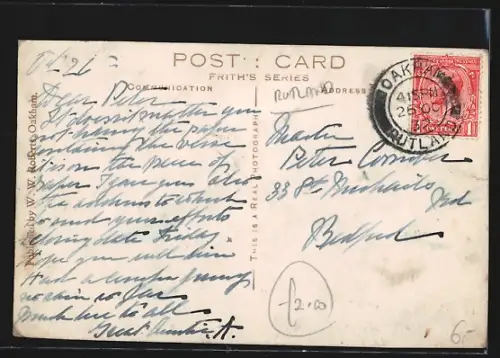 POST CARD
FRITH'S SERIES
COMMUNICATION
ADDRESS
RUTLAND
Oct 26
Dear Peter
It doesn't matter you
not having the paper
containing the verse
is on the piece of
paper I gave you also
the address to which
to send your efforts
Closing date Friday
hope you will win
no rain so far
Much love to all
Great Auntie A.
Master
Peter
33 St Michaels Rd
Bedford
Published by W. W. Roberts, Oakham.
THIS IS A REAL PHOTOGRAPH
OAKHAM
4 15 PM
26 OC
RUTLAND
£2.00
6.-